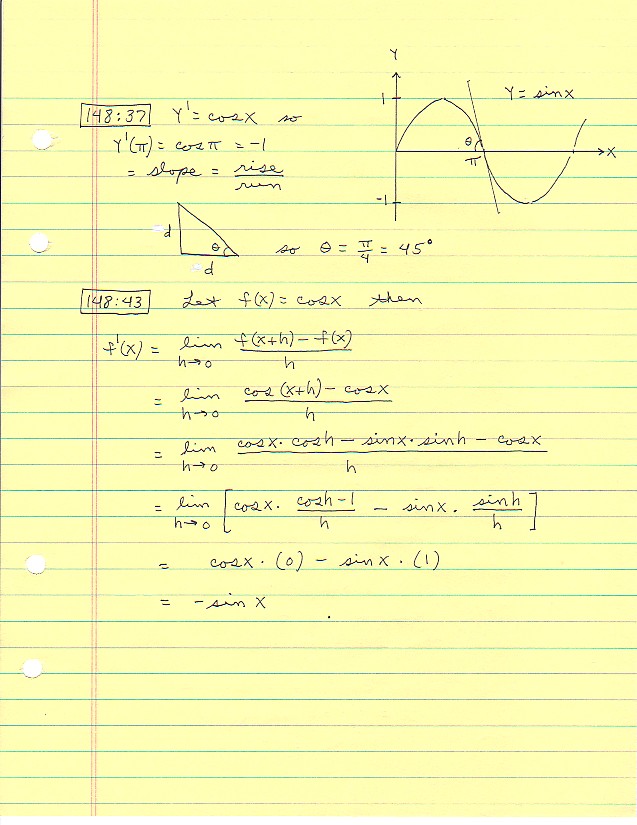 Y
1
Y = sinx
148:37 Y' = cosx so
Y'(π) = cosπ = -1
θ
π
X
= slope = rise/run
-1
d
θ
so θ = π/4 = 45°
d
148:43 Let f(x) = cosx then
f'(x) = lim h→0 (f(x+h) - f(x))/h
= lim h→0 (cos(x+h) - cosx)/h
= lim h→0 (cosx · cosh - sinx · sinh - cosx)/h
= lim h→0 [cosx · (cosh-1)/h - sinx · sinh/h]
= cosx · (0) - sinx · (1)
= -sin x